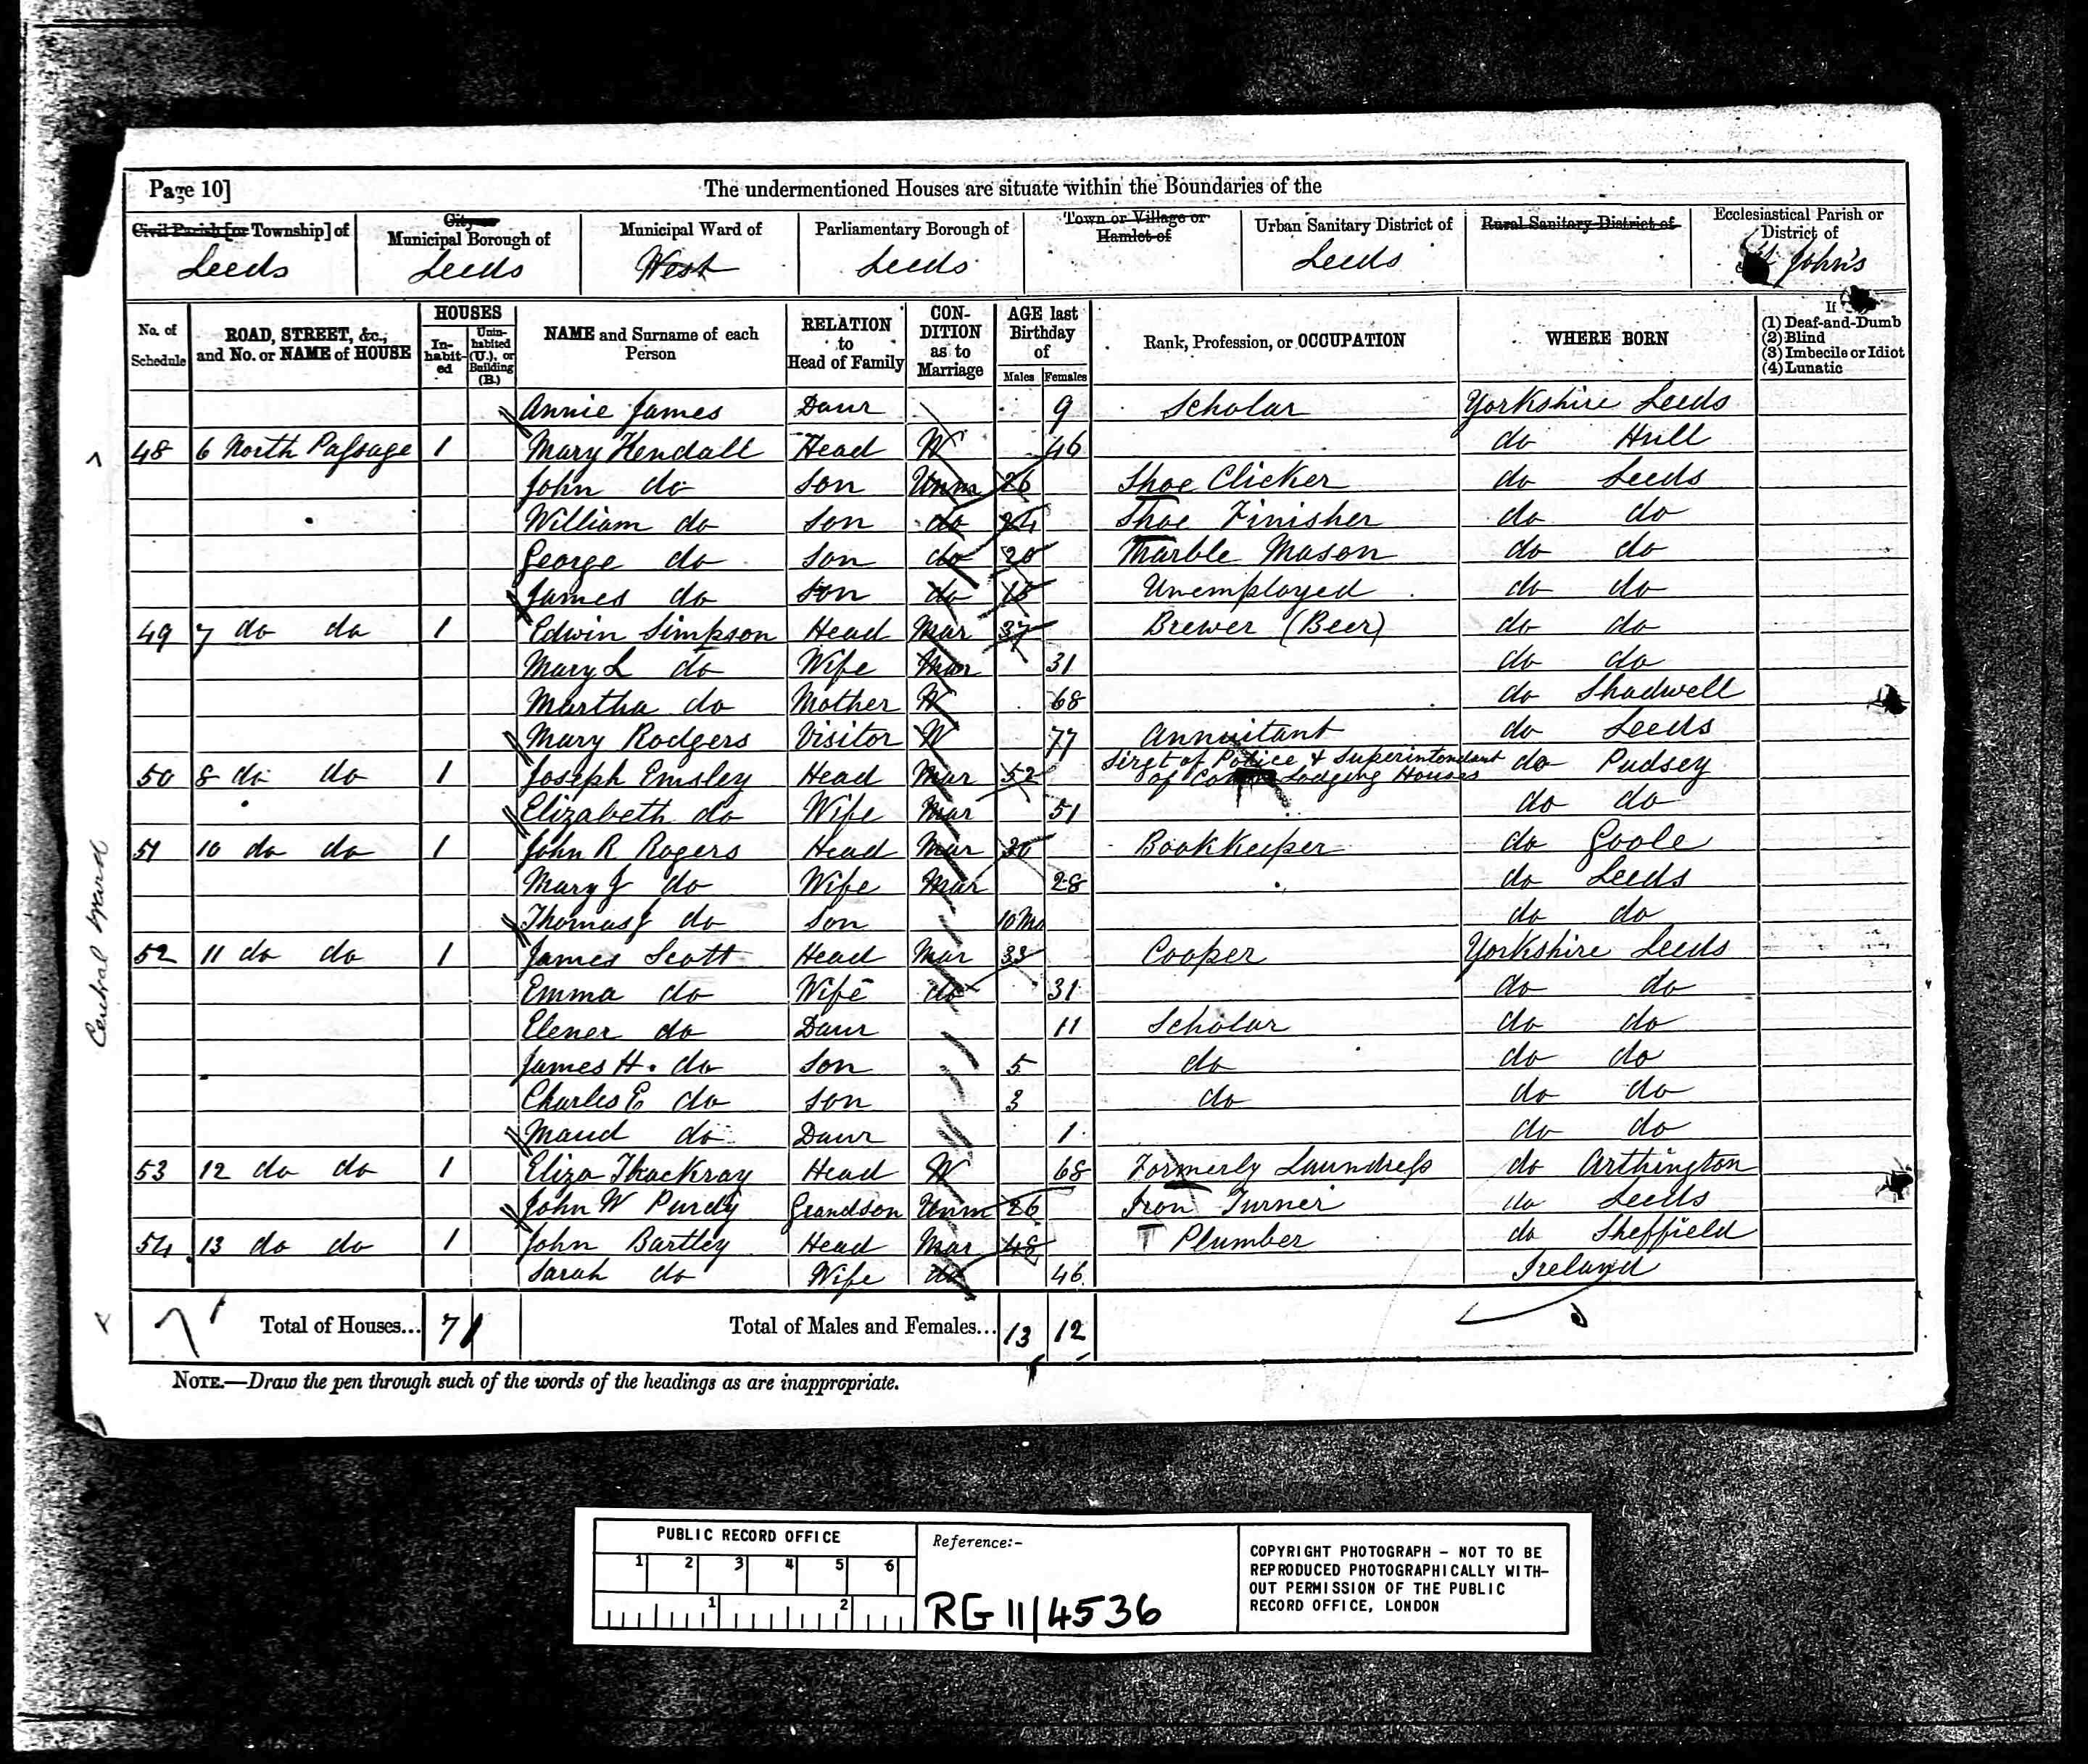 Page 10]
The undermentioned Houses are situate within the Boundaries of the
Civil Parish [or Township] of
Leeds
City or
Municipal Borough of
Leeds
Municipal Ward of
West
Parliamentary Borough of
Leeds
Town or Village or
Hamlet of
Urban Sanitary District of
Leeds
Rural Sanitary District of
Ecclesiastical Parish or
District of
St John's
No. of Schedule
ROAD, STREET, &c., and No. or NAME of HOUSE
HOUSES
Inhabited
Uninhabited (U.), or Building (B.)
NAME and Surname of each Person
RELATION to Head of Family
CONDITION as to Marriage
AGE last Birthday of
Males
Females
Rank, Profession, or OCCUPATION
WHERE BORN
If
(1) Deaf-and-Dumb
(2) Blind
(3) Imbecile or Idiot
(4) Lunatic
Annie James Daur 9 Scholar Yorkshire Leeds
48 6 North Passage 1 Mary Kendall Head W 46 do Hull
John do Son Unm 26 Shoe Clicker do Leeds
William do Son do 24 Shoe Finisher do do
George do Son do 20 Marble Mason do do
James do Son do 18 Unemployed do do
49 7 do do 1 Edwin Simpson Head Mar 37 Brewer (Beer) do do
Mary L do Wife Mar 31 do do
Martha do Mother W 68 do Shadwell
Mary Rodgers Visitor W 77 Annuitant do Leeds
50 8 do do 1 Joseph Emsley Head Mar 52 Sergt of Police & Superintendant of Lodging Houses do Pudsey
Elizabeth do Wife Mar 51 do do
51 10 do do 1 John R Rogers Head Mar 30 Bookkeeper do Goole
Mary J do Wife Mar 28 do Leeds
Thomas J do Son 10 Mo do do
52 11 do do 1 James Scott Head Mar 33 Cooper Yorkshire Leeds
Emma do Wife do 31 do do
Elener do Daur 11 Scholar do do
James H. do Son 5 do do do
Charles E do Son 3 do do do
Maud do Daur 1 do do
53 12 do do 1 Eliza Thackray Head W 68 Formerly Laundress do Arthington
John W Purdy Grandson Unm 26 Iron Turner do Leeds
54 13 do do 1 John Bartley Head Mar 48 Plumber do Sheffield
Sarah do Wife do 46 Ireland
Total of Houses... 7
Total of Males and Females... 13 12
NOTE.—Draw the pen through such of the words of the headings as are inappropriate.
Central Ward
PUBLIC RECORD OFFICE
1 2 3 4 5 6
1 2
Reference:-
RG 11/4536
COPYRIGHT PHOTOGRAPH - NOT TO BE
REPRODUCED PHOTOGRAPHICALLY WITH-
OUT PERMISSION OF THE PUBLIC
RECORD OFFICE, LONDON